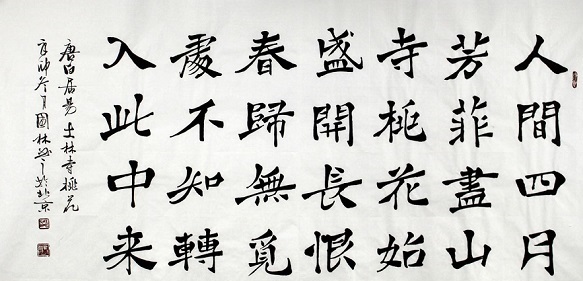 人間四月
芳菲盡山
寺桃花始
盛開長恨
春歸無覓
處不知轉
入此中来
唐白居易大林寺桃花
卯冬月國林書於北京